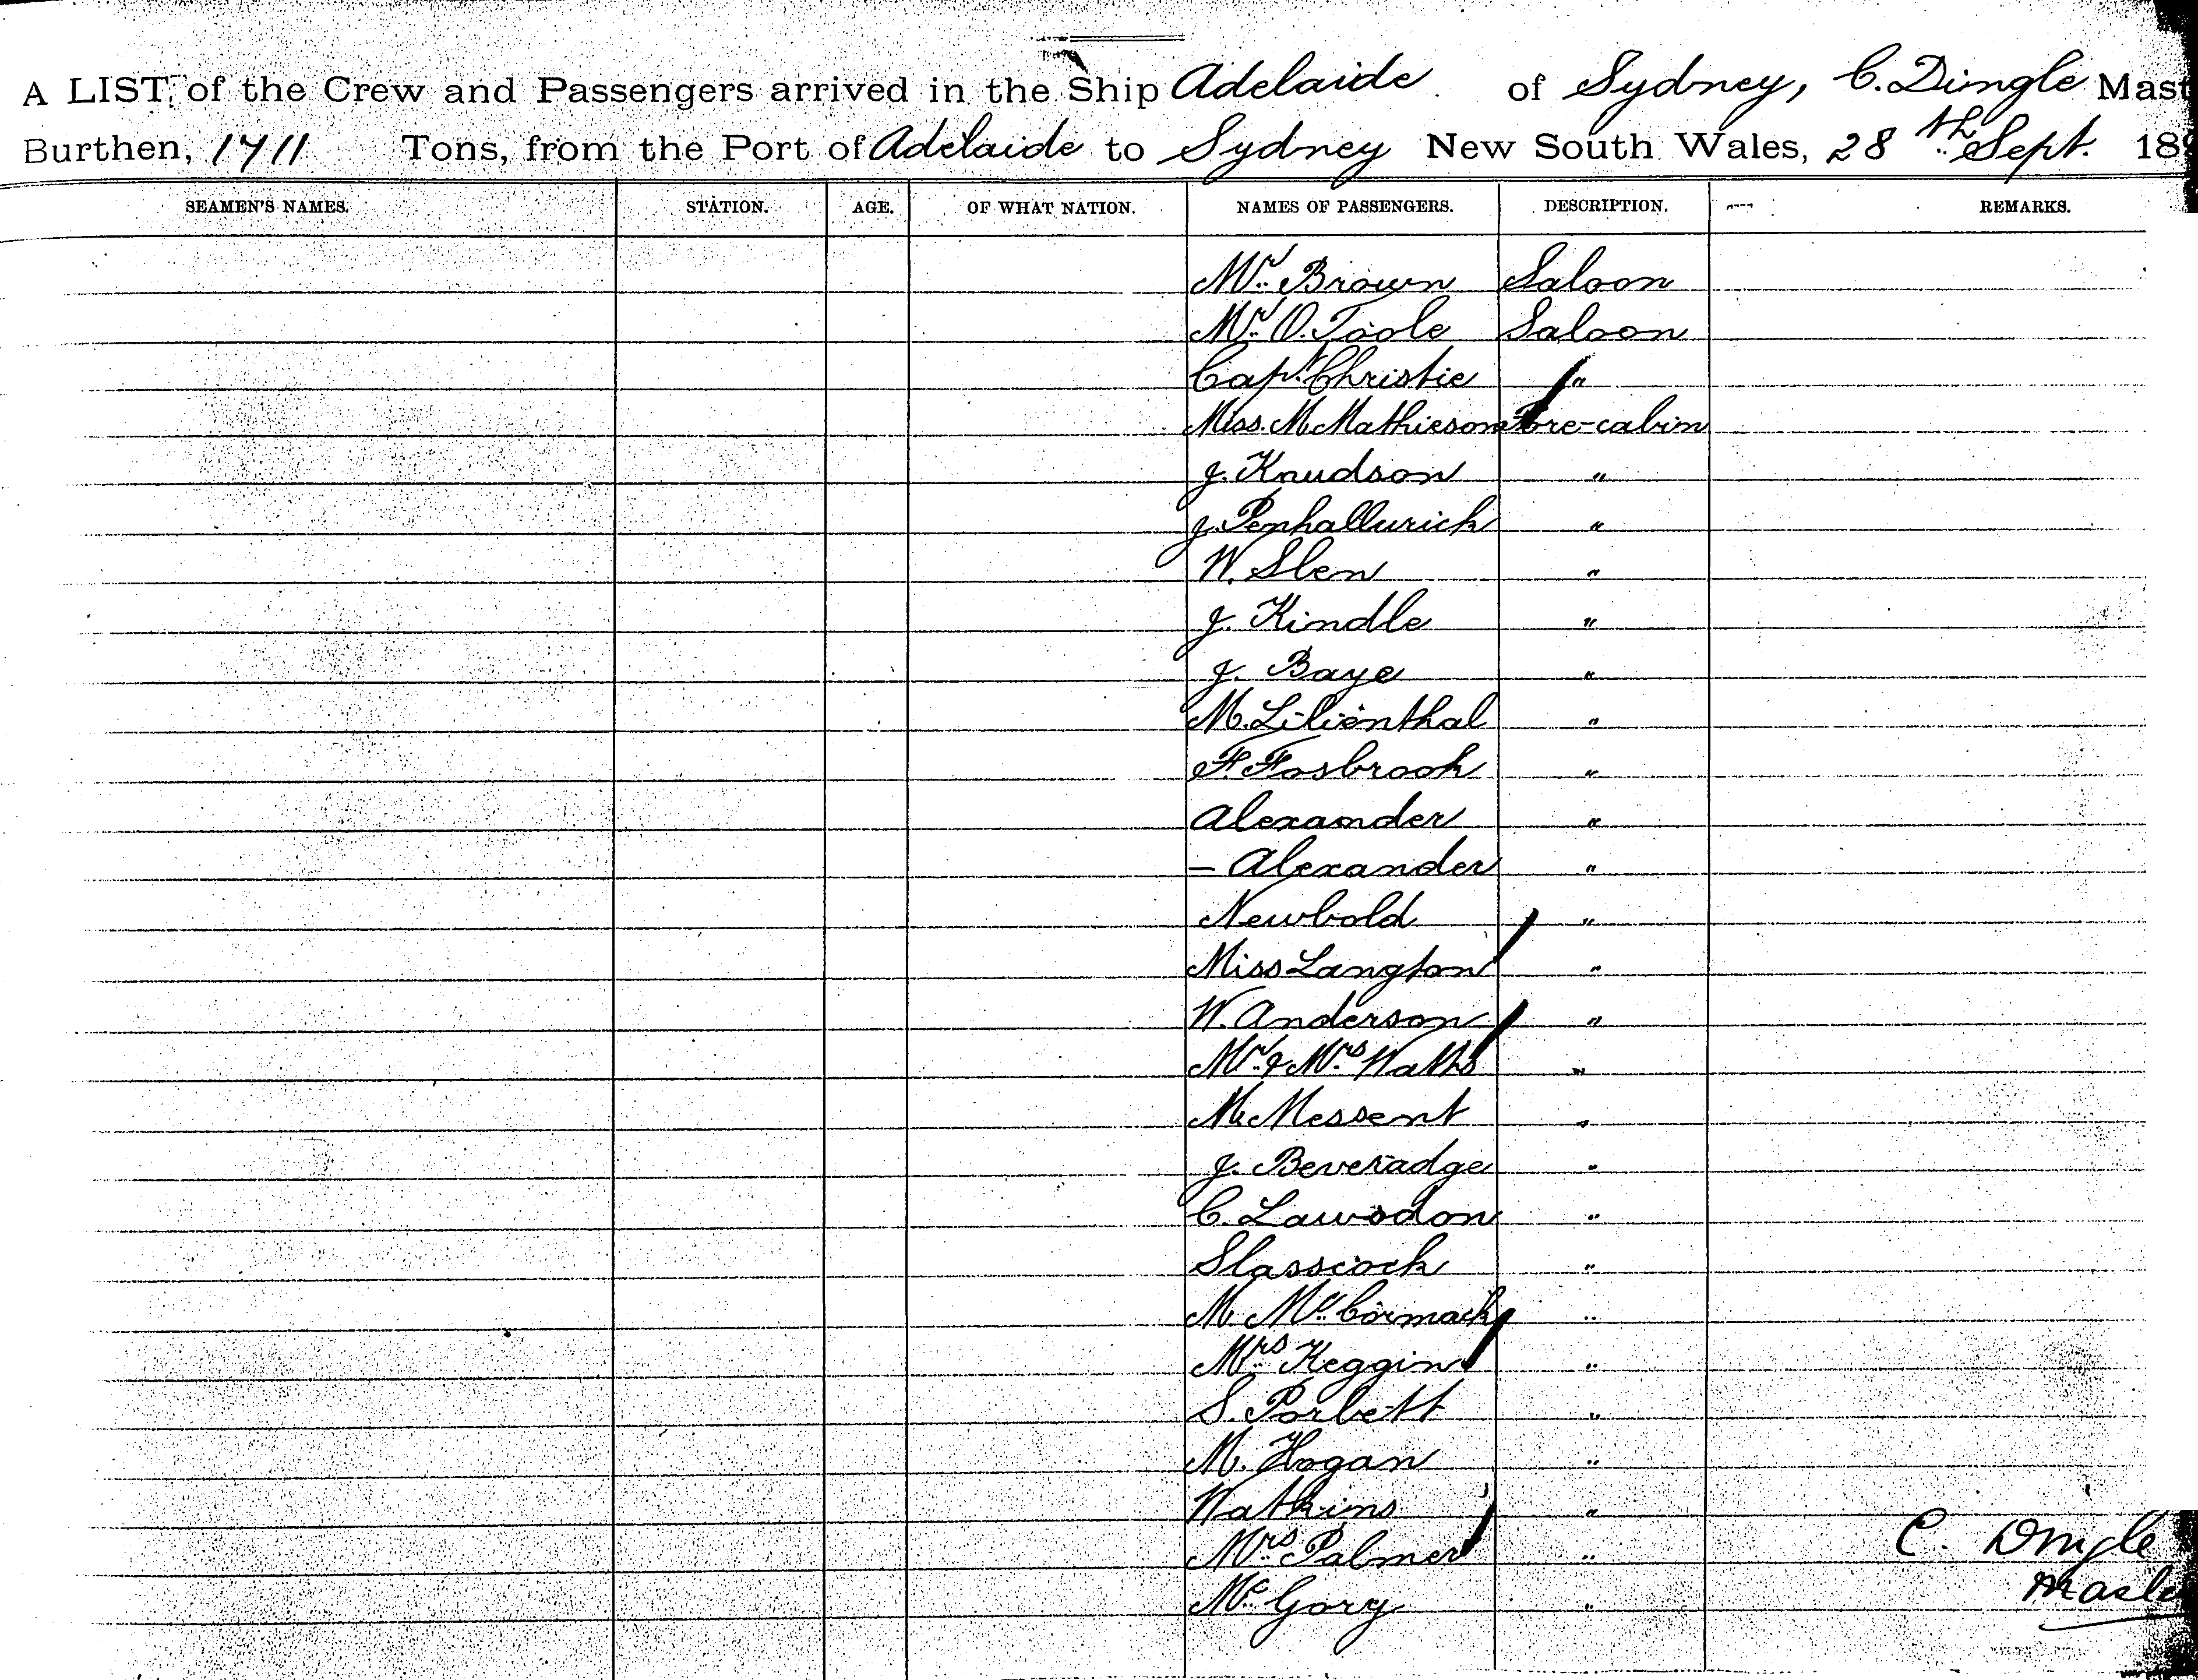 A LIST, of the Crew and Passengers arrived in the Ship Adelaide of Sydney, C. Dingle Mast
Burthen, 1711 Tons, from the Port of Adelaide to Sydney New South Wales, 28th Sept. 189
SEAMEN'S NAMES. STATION. AGE. OF WHAT NATION. NAMES OF PASSENGERS. DESCRIPTION. REMARKS.
Mr. Brown Saloon
Mr. O. Toole Saloon
Capt. Christie "
Miss. M. Mathieson Fore-cabin
J. Knudson "
J. Penhallurick "
W. Slen "
J. Kindle "
J. Baye "
M. Lilienthal "
F. Fosbrook "
Alexander "
- Alexander "
Newbold "
Miss Langton "
W. Anderson "
Mr. & Mrs. Watts "
M. Messent "
J. Beveradge "
C. Lawsdon "
Slasscock "
M. Mc. Cormack "
Mrs. Keggin "
S. Porbett "
M. Hogan "
Watkins "
Mrs. Palmer "
Mc. Gory "
C. Dingle
Maste